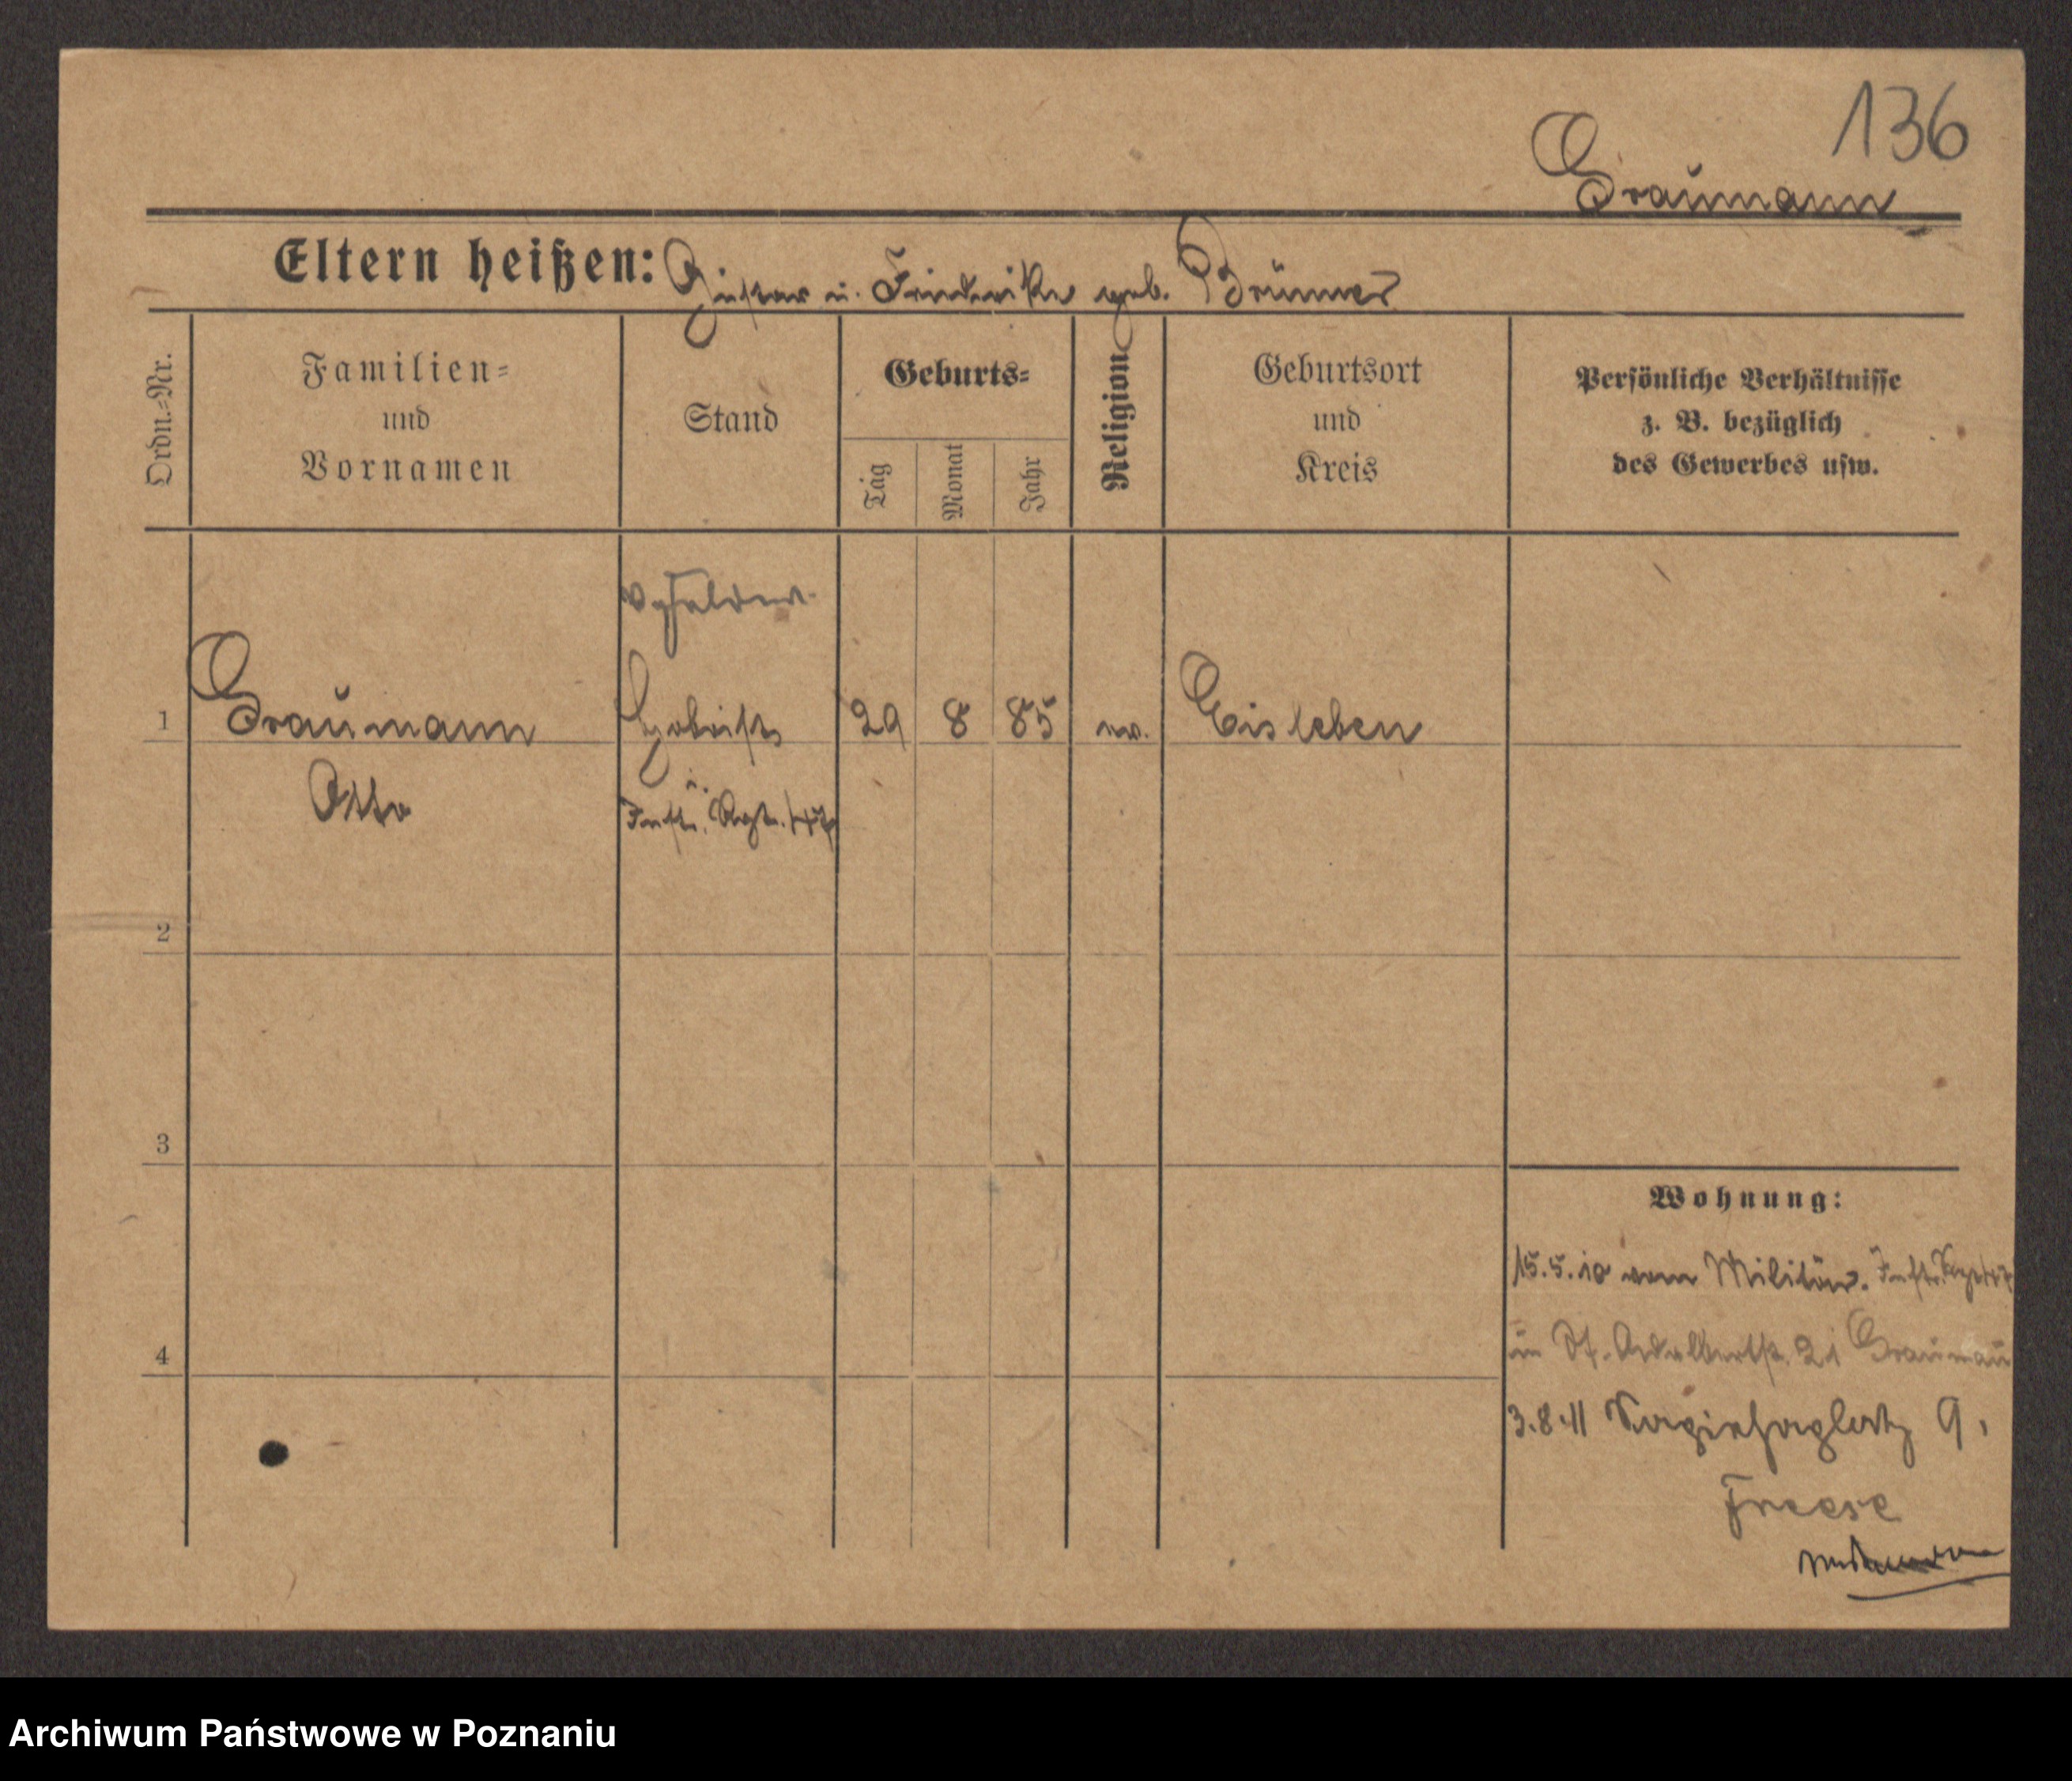 136
Graumann
Eltern heißen: Gustav u. Friederike geb. Brünner
Ordn.-Nr.
Familien-
und
Vornamen
Stand
Geburts-
Tag
Monat
Jahr
Religion
Geburtsort
und
Kreis
Persönliche Verhältnisse
z. B. bezüglich
des Gewerbes usw.
1 Graumann Hoboist 29 8 85 ev. Eisleben
Otto u.
Inftr. Rgt. 47
2
3
4
Wohnung:
15.5.10 vom Militär. Inftr. Rgt 47
in St. Adalbertstr. 21 Graumann
3.8.11 9,
Freese
Archiwum Państwowe w Poznaniu